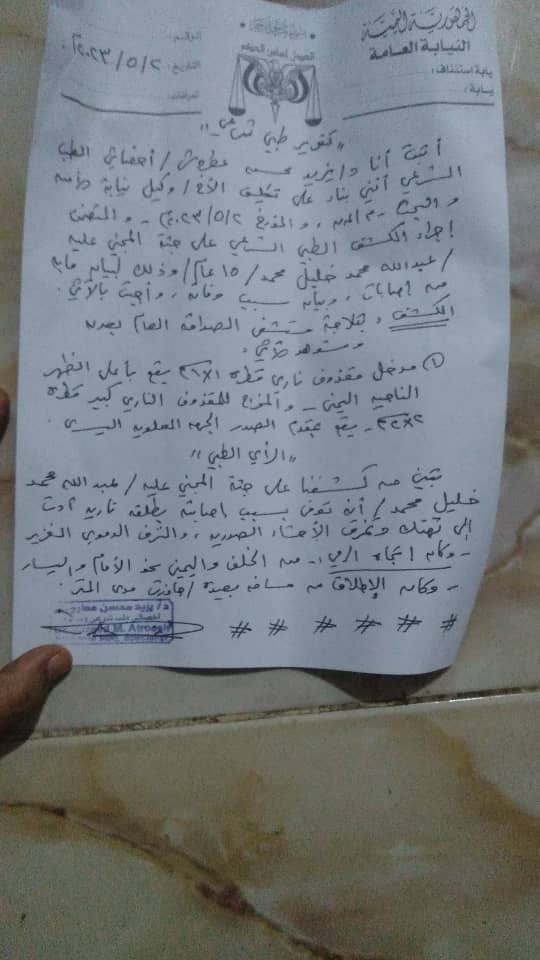 الجمهورية اليمنية
النيابة العامة
نيابة استئناف:
نيابة:
الرقم:
التاريخ: ٢٠٢٣/٥/٢م
المرفقات:
"تقرير طبي شرعي"
أثبت أنا د/ يزيد محسن / أخصائي الطب
الشرعي أنني بناء على تكليف الأخ/ وكيل نيابة
والبحث ، والمؤرخ ٢٠٢٣/٥/٢م - والمتضمن
إجراء الكشف الطبي الشرعي على جثة المجني عليه
/ عبدالله محمد خليل محمد/ ١٥ عام/ وذلك لبيان ما به
من إصابات، وبيان سبب وفاته، وأجيب بالآتي:
الكشف: بثلاجة مستشفى الصداقة العام بعدن
وشوهد الآتي:
① مدخل مقذوف ناري قطره ١×١سم يقع بأعلى الظهر
الناحية اليمنى - والمخرج للمقذوف الناري كبير قطره
٢×٣سم - يقع بمقدم الصدر الجهة العلوية اليسرى.
"الرأي الطبي"
تبين من كشفنا على جثة المجني عليه/ عبدالله محمد
خليل محمد/ أنه توفى بسبب إصابته بطلقة نارية أدت
إلى تهتك وتمزق الأحشاء الصدرية، والنزف الدموي الغزير
- وكان اتجاه الرمي: من الخلف واليمين نحو الأمام واليسار
- وكان الإطلاق من مسافة بعيدة/ جاوزت مدى المتر.
د/ يزيد محسن
# # # # # #